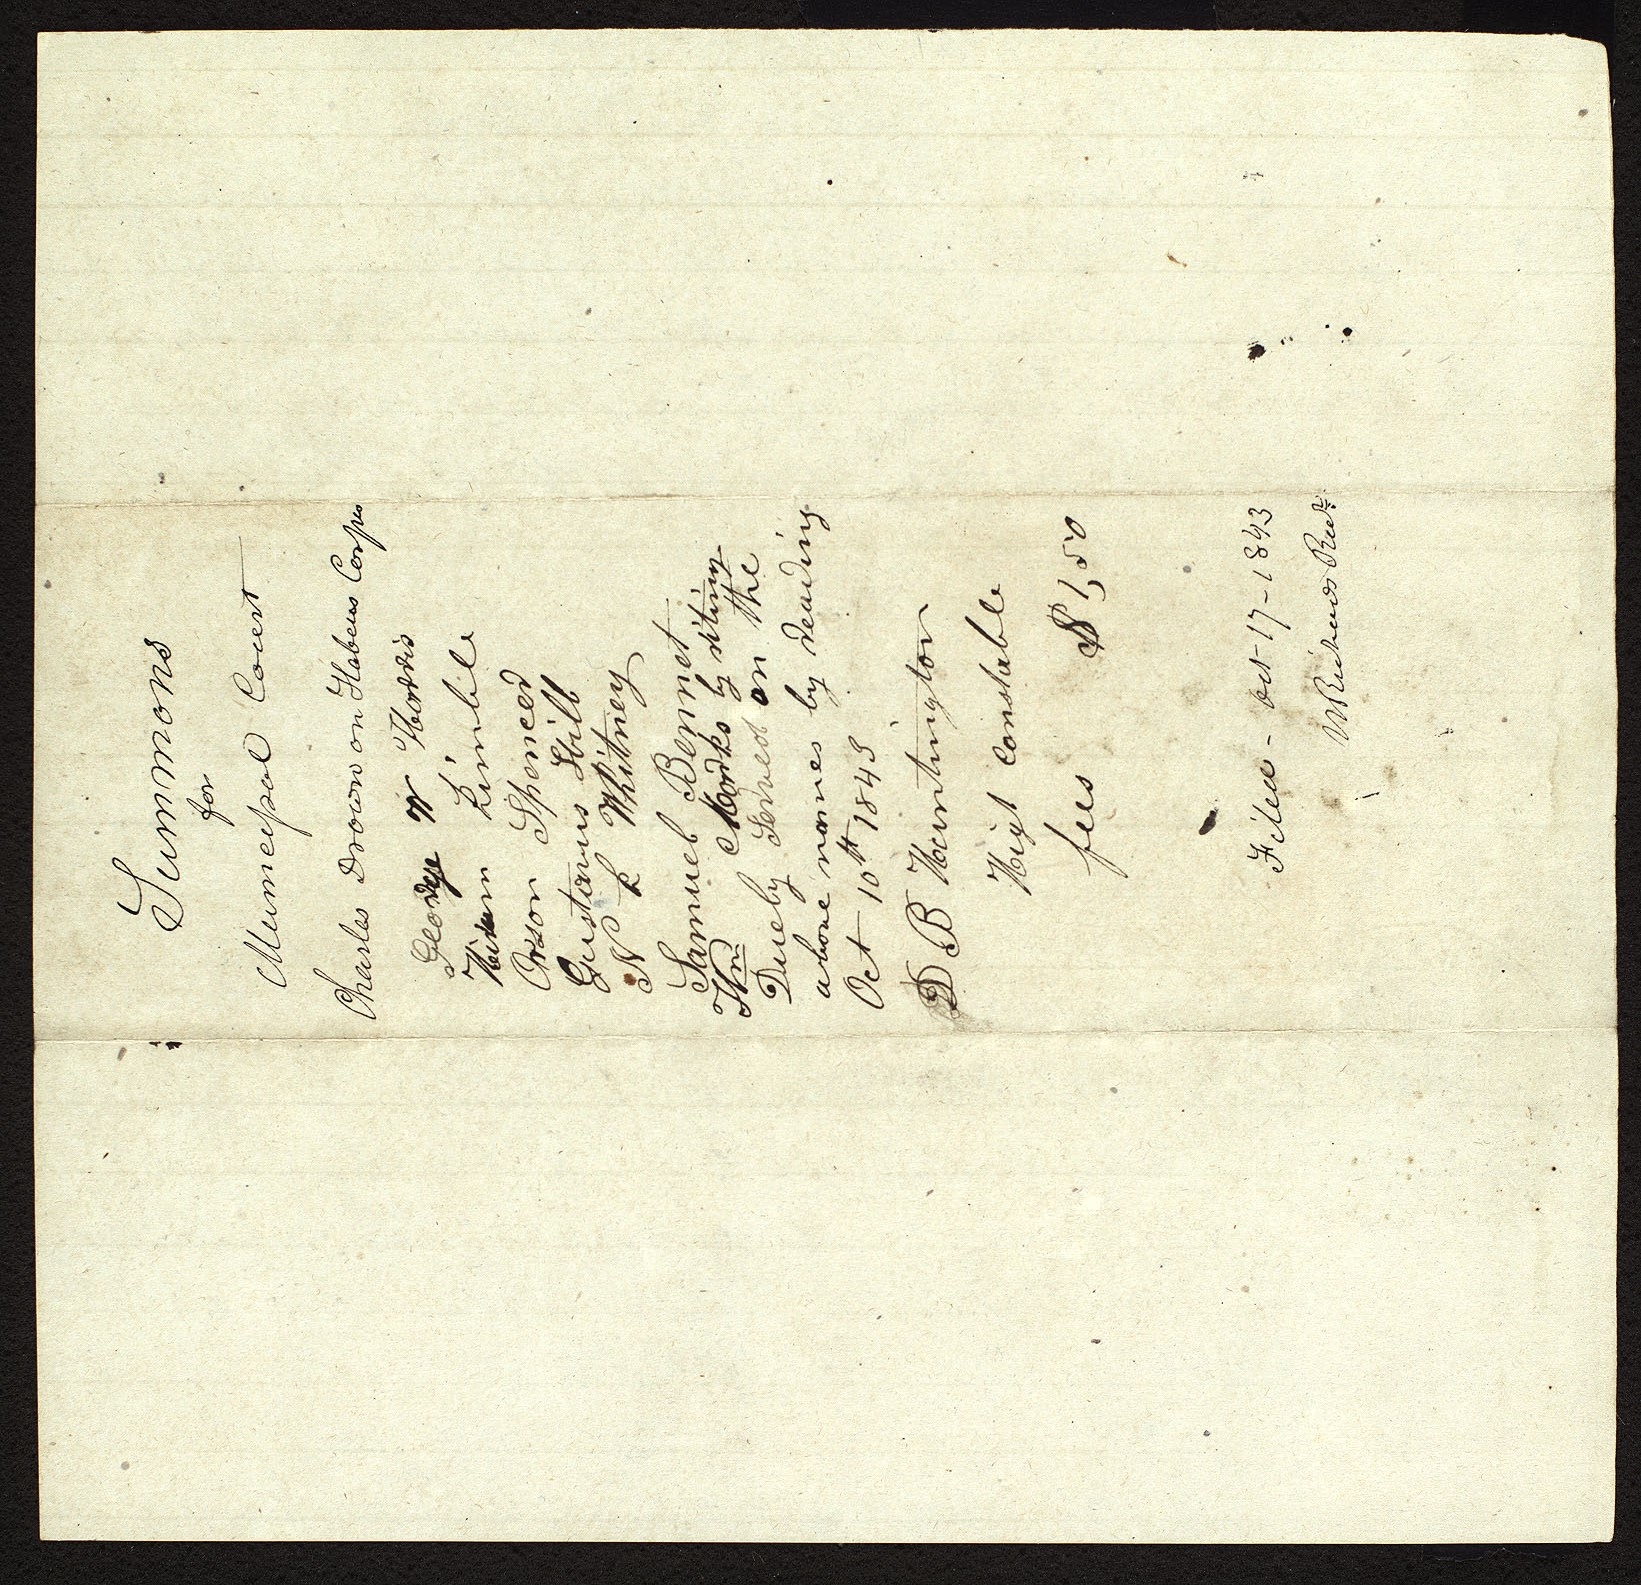 Summons
for
Municipal Court
Charles Drown on Habeus Corpus
George W Harris
Hiram Kimbil
Orson Spencer
Gustavus Hill
N K Whitney
Samuel Bennet
Wm Marks by riting
Duely Served on the
above names by reading
Oct 10th 1843
D B Huntington
Higt Constable
fees $1,50
Filed - Oct - 17 - 1843
W Richards Recdr.